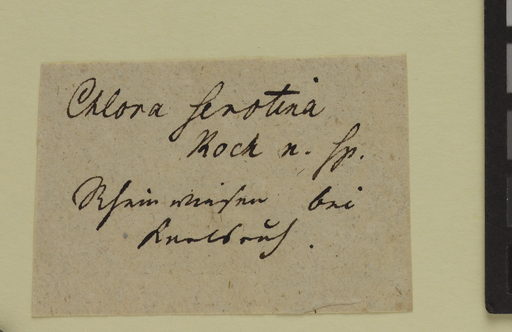 Chlora serotina
Koch n. sp.
Rheinwiesen bei
Karlsruh.